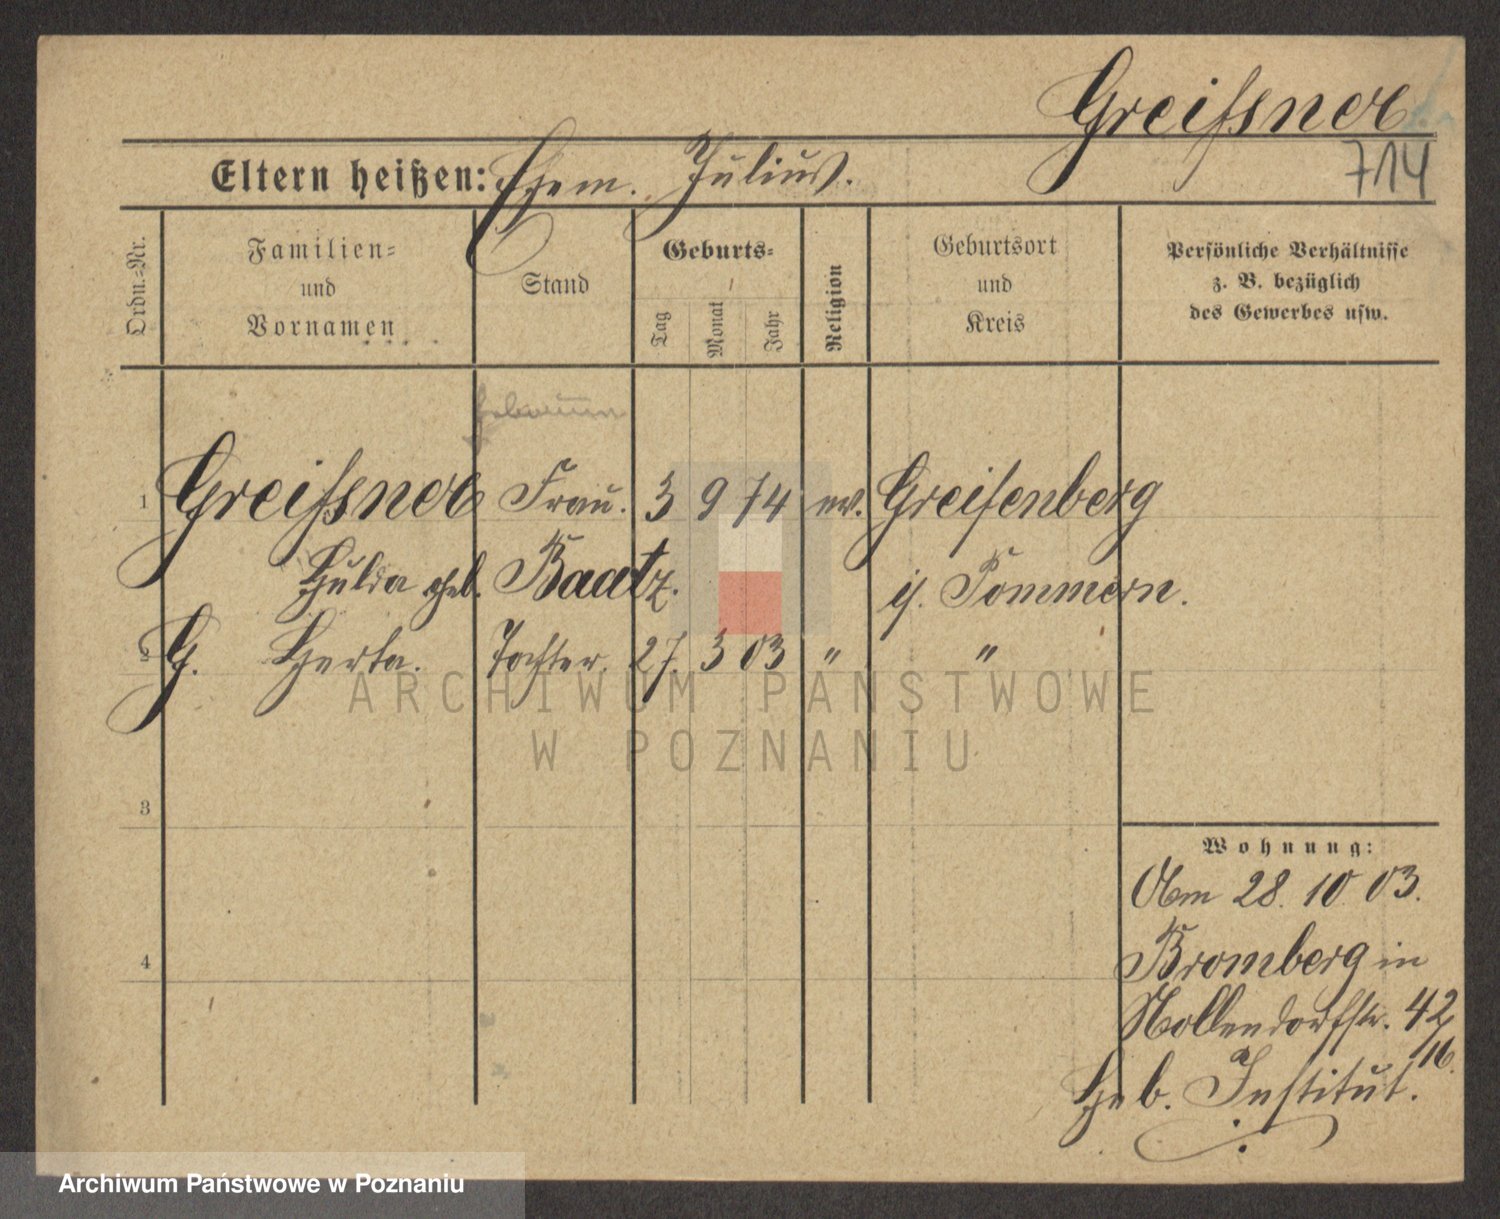 Greissner
714
Eltern heißen: Ehem. Julius.
Ordn.-Nr.
Familien-
und
Vornamen
Stand
Geburts-
Tag
Monat
Jahr
Religion
Geburtsort
und
Kreis
Persönliche Verhältnisse
z. B. bezüglich
des Gewerbes usw.
Hebamme
1 Greissner Frau. 3 9 74 ev. Greifenberg
Hulda geb. Baatz. i/. Pommern.
2 G. Herta. Tochter. 27. 3 03 " "
ARCHIWUM PAŃSTWOWE
W POZNANIU
3
4
Wohnung:
Abm 28. 10 03.
Bromberg in
Nollendorfstr. 42
Heb. Institut.
Archiwum Państwowe w Poznaniu